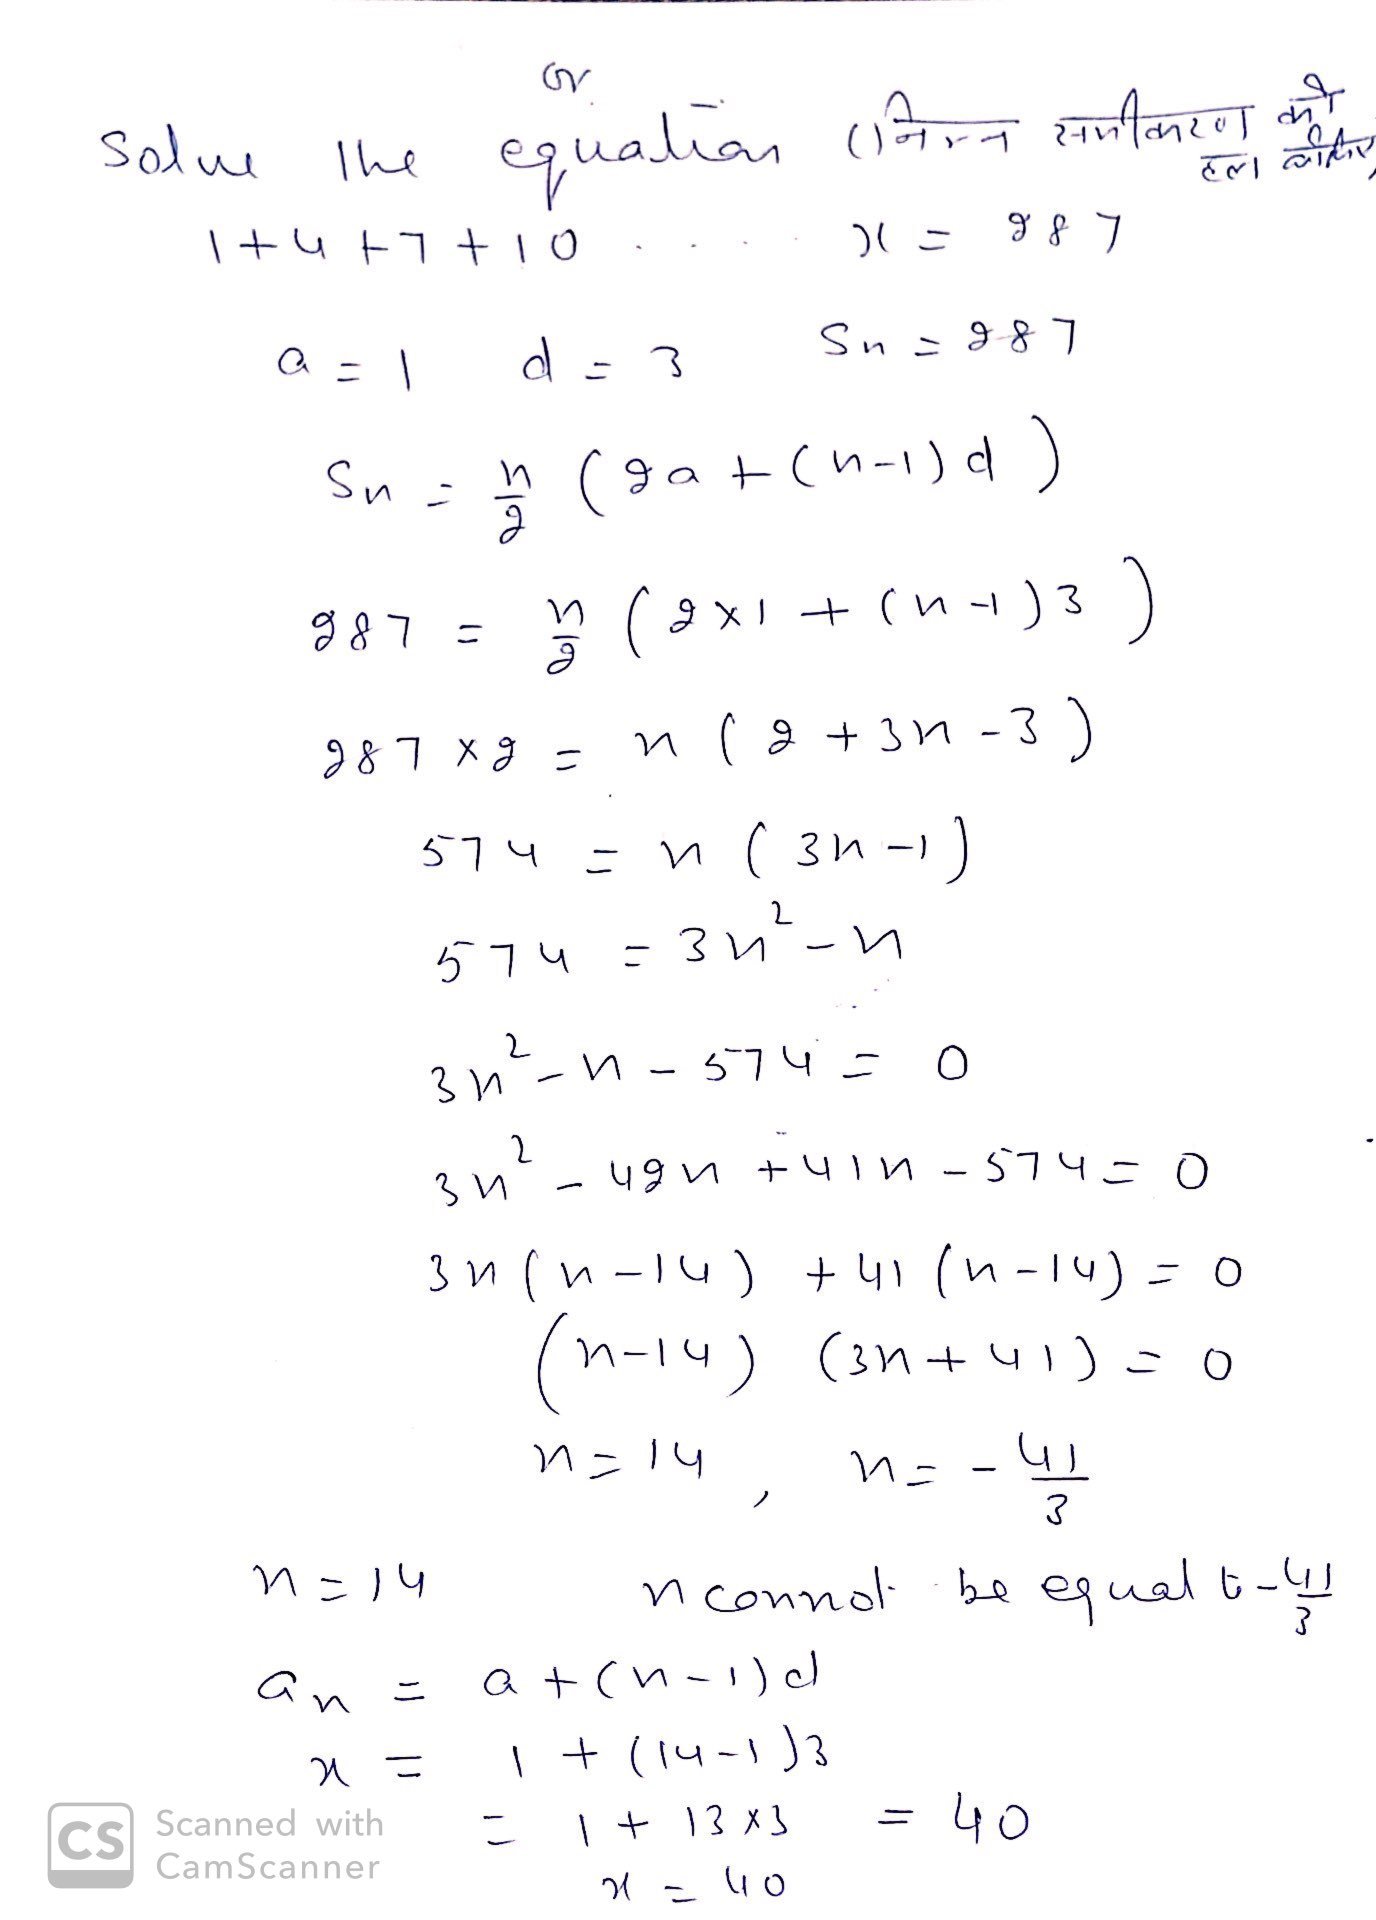 or
Solve the equation (निम्न समीकरण को
हल कीजिए)
1 + 4 + 7 + 10 . . . . . x = 287
a = 1 d = 3 Sn = 287
Sn = n/2 (2a + (n-1) d )
287 = n/2 (2×1 + (n-1)3 )
287 × 2 = n ( 2 + 3n - 3 )
574 = n ( 3n - 1 )
574 = 3n² - n
3n² - n - 574 = 0
3n² - 42n + 41n - 574 = 0
3n (n - 14) + 41 (n - 14) = 0
(n - 14) (3n + 41) = 0
n = 14 , n = - 41/3
n = 14 n connot be equal to - 41/3
an = a + (n - 1) d
x = 1 + (14 - 1)3
= 1 + 13 × 3 = 40
x = 40
CS Scanned with
CamScanner